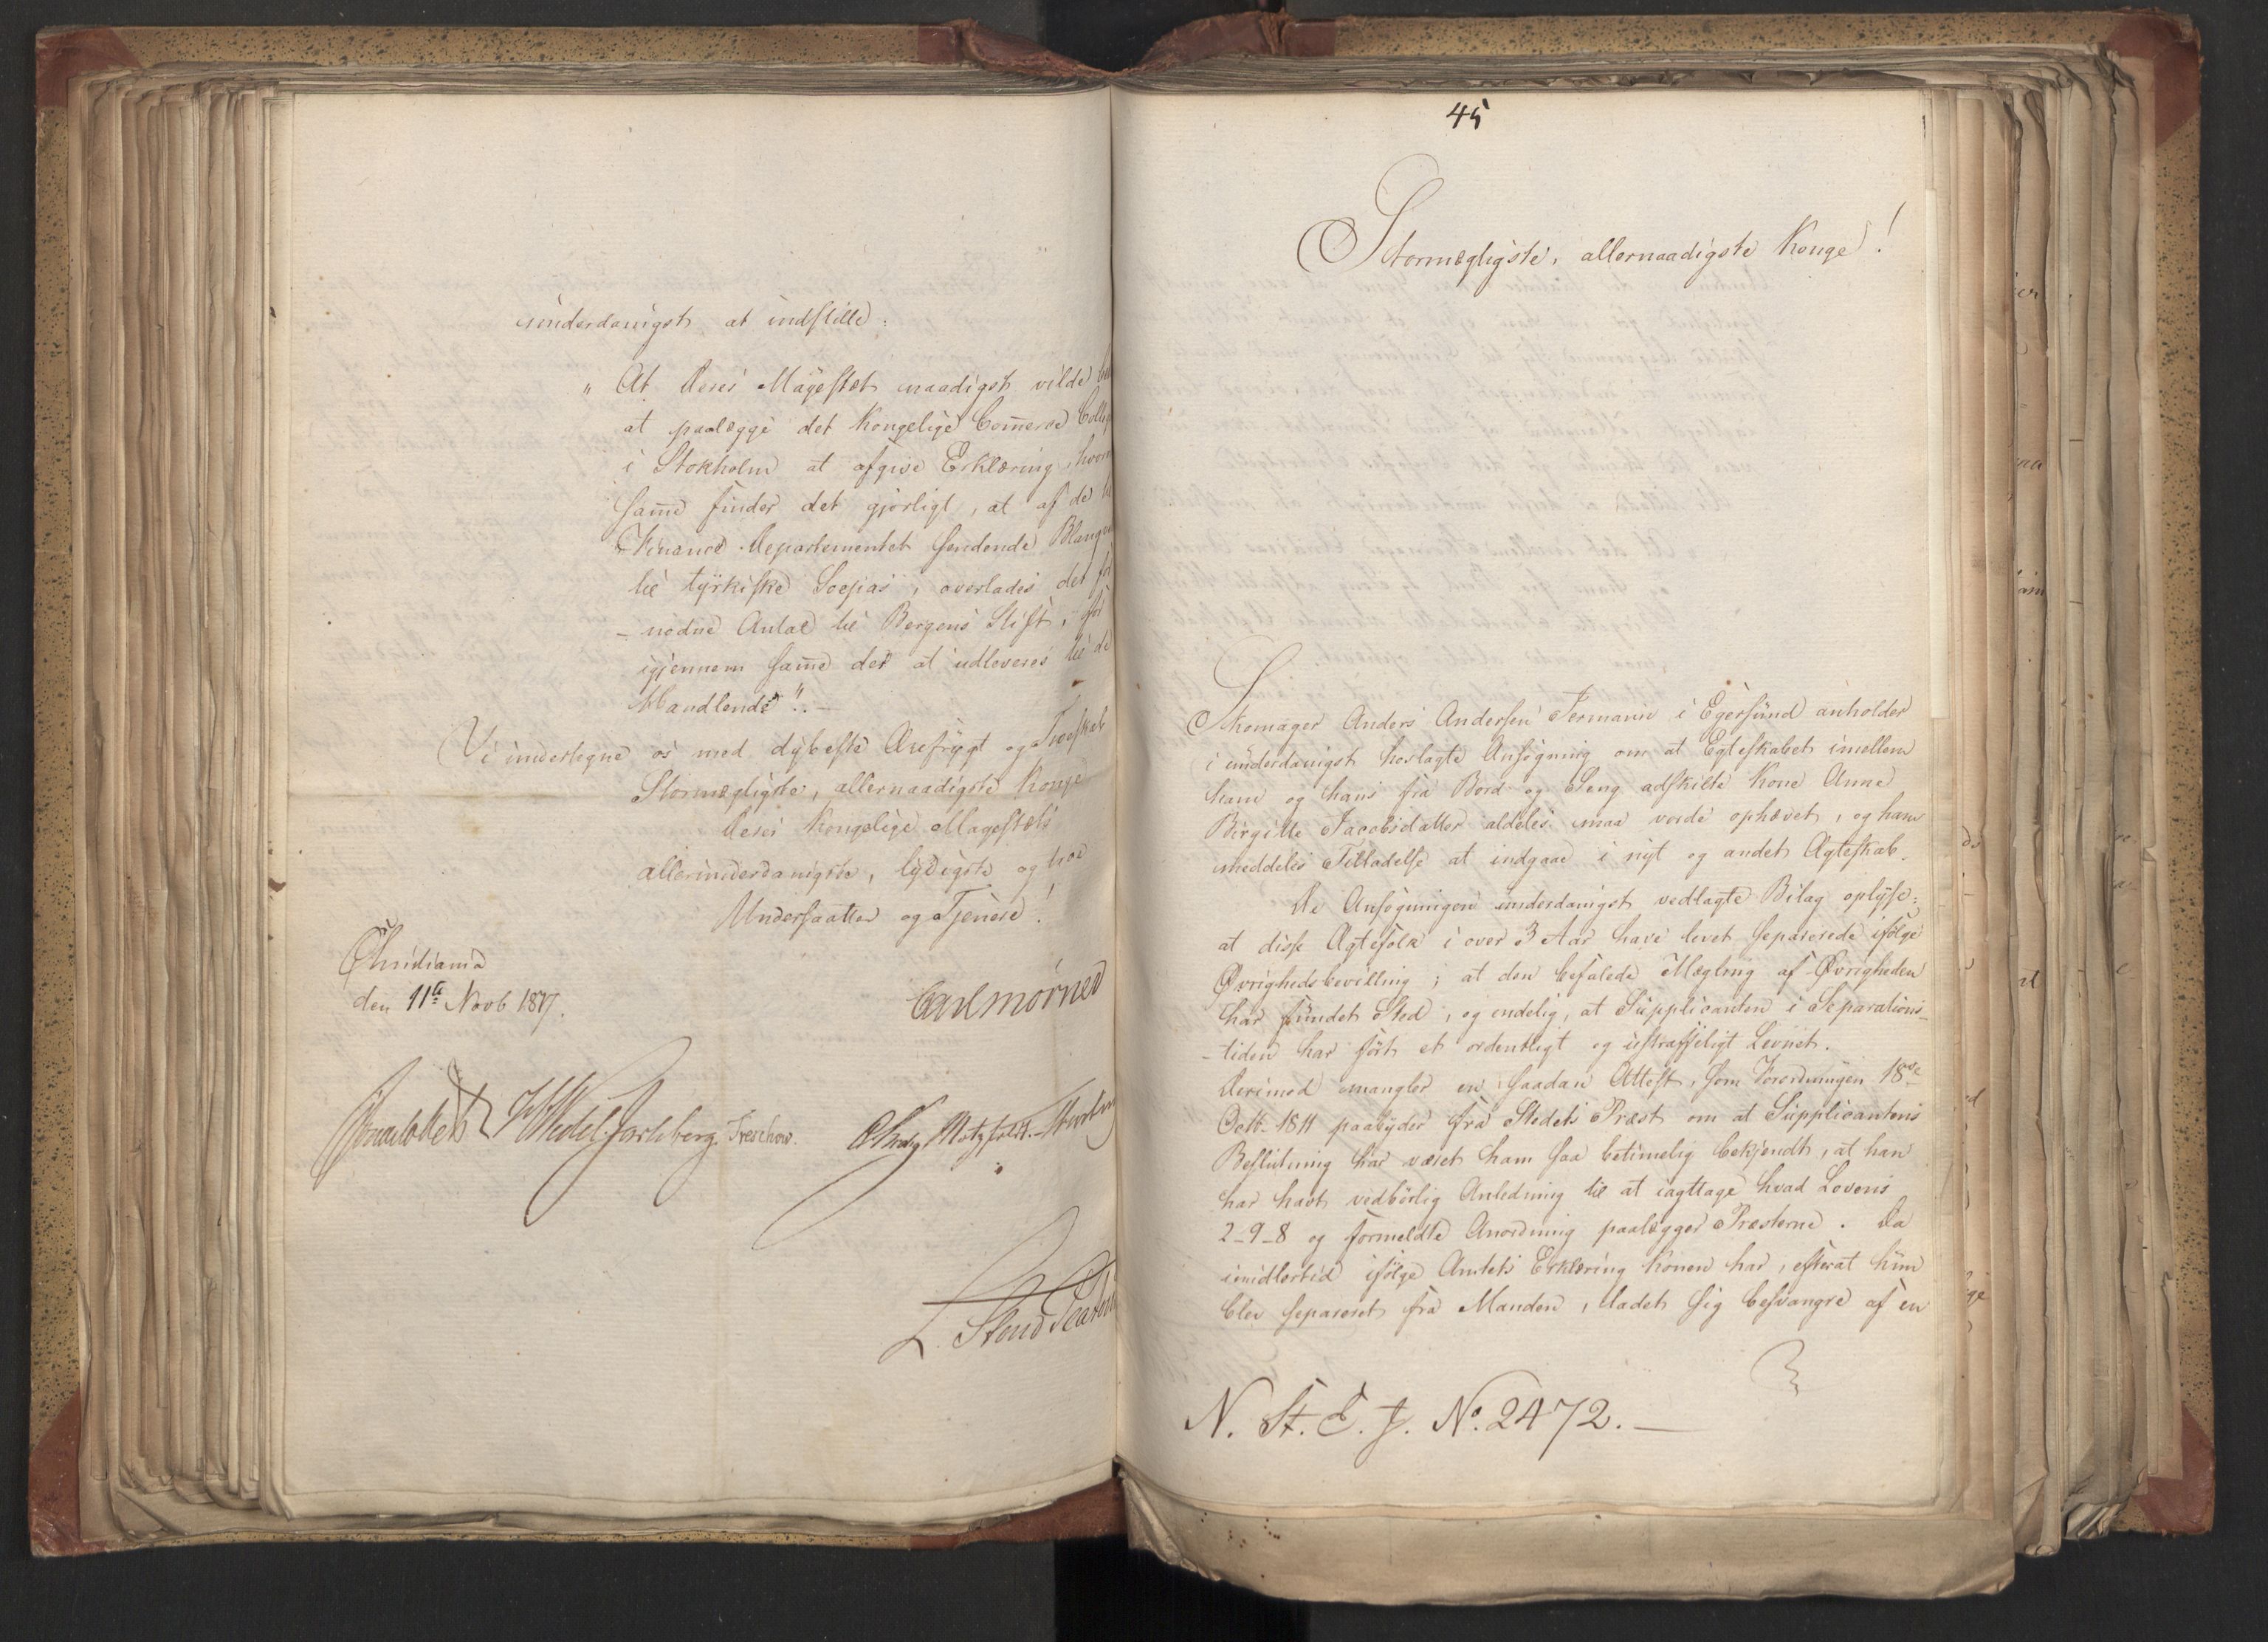 underdanigst at indstille:
" At Deres Majestæt naadigst vilde
at paalægge det Kongelige Com̄erce
i Stokholm at afgive Erklæring,
sam̄e finder det gjørligt, at af de
Finance Departementet sendende
til tyrkiske Soepas, overlades det
- nødne Antal til Bergens Stift, for
igjennem sam̄e der at udleveres til de
Handlende". -
Vi undertegne os med dybeste Ærefrygt og Troeskab
Stormægtigste, allernaadigste Konge
Deres Kongelige Majestæts
allerunderdanigste, lydigste og troe
Undersaatter og Tjenere!
Christiania
den 11te Novb 1817.
Carl Mörner
Sommerfeldt HWedel Jarlsberg. Treschow. Motzfeldt.
45
Stormægtigste, allernaadigste Konge!
Skomager Anders Andersen Termanie i Egersund anholder
i underdanigst hoslagte Ansøgning om at Egteskabet imellem
ham og hans fra Bord og Seng adskilte Kone Anne
Birgitte Jacobsdatter aldeles maa vorde ophævet, og ham
meddeles Tilladelse at indgaae i nyt og andet Ægteskab.
De Ansøgningen underdanigst vedlagte Bilag oplyse:
at disse Ægtefolk i over 3 Aar have levet separerede ifølge
Øvrighedsbevilling; at den befalede Mægling af Øvrigheden
har fundet Sted, og endelig, at Supplicanten i Separations-
- tiden har ført et ordentligt og ustraffeligt Levnet.
Derimod mangler en saadan Attest, som Forordningen 18de
Octb. 1811 paabyder fra Stedets Præst om at Supplicantens
Beslutning har været ham saa betimelig bekjendt, at han
har havt vedbørlig Anledning til at iagttage hvad Lovens
2-9-8 og formeldte Anordning paalægger Præsterne. Da
imidlertid ifølge Amtets Erklæring Konen har, efterat hun
blev separeret fra Manden, ladet sig besvangre af en
N. St. E. J. No. 2472. -